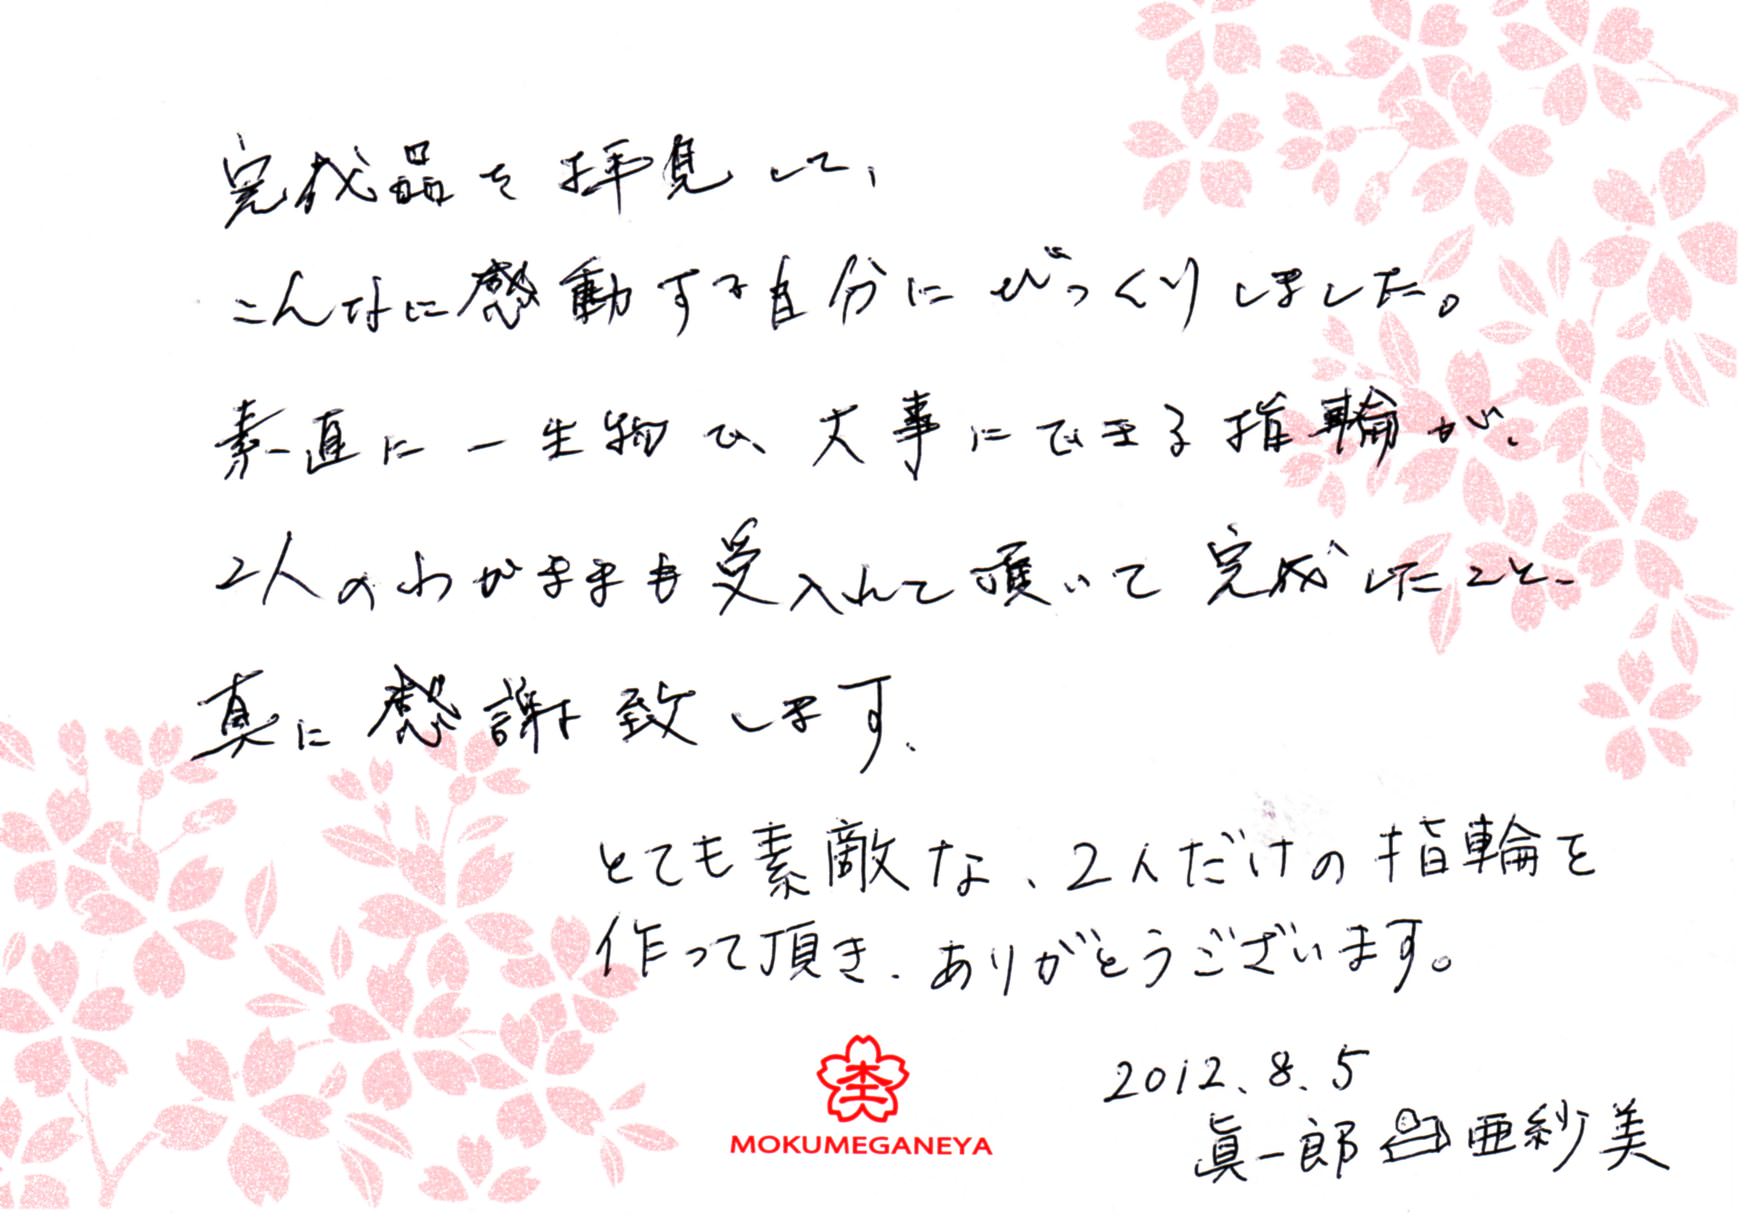 完成品を拝見して、
こんなに感動する自分にびっくりしました。
素直に一生物で、大事にできる指輪が、
2人のわがままも受入れて頂いて完成したこと、
真に感謝致します、
とても素敵な、2人だけの指輪を
作って頂き、ありがとうございます。
MOKUMEGANEYA
2012.8.5
眞一郎 亜紗美